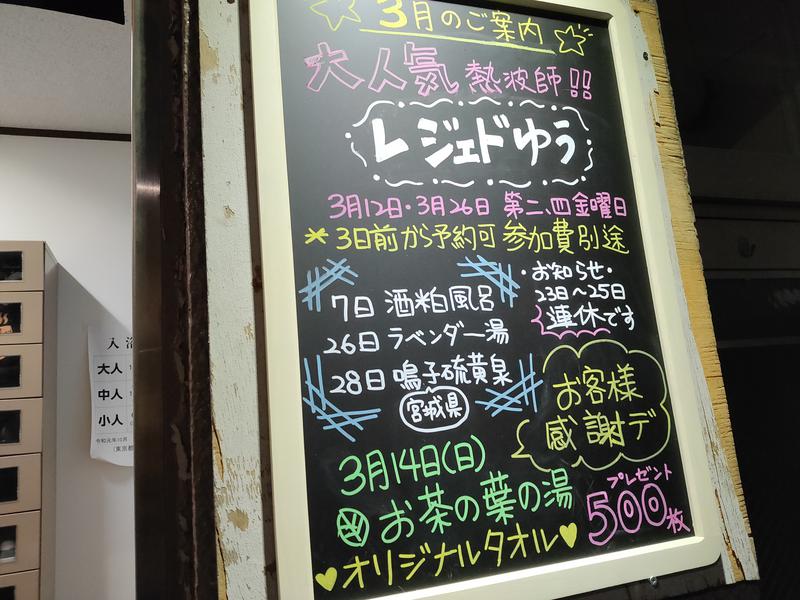 3月のご案内
大人気 熱波師!!
レジェドゆう
3月12日・3月26日 第二、四金曜日
*3日前から予約可 参加費別途
・お知らせ・
23日～25日
連休です
7日 酒粕風呂
26日 ラベンダー湯
28日 鳴子硫黄泉
宮城県
お客様
感謝デ
3月14日(日)
お茶の葉の湯
オリジナルタオル
プレゼント
500枚
入浴
大人
中人
小人
令和元年10月
(東京都